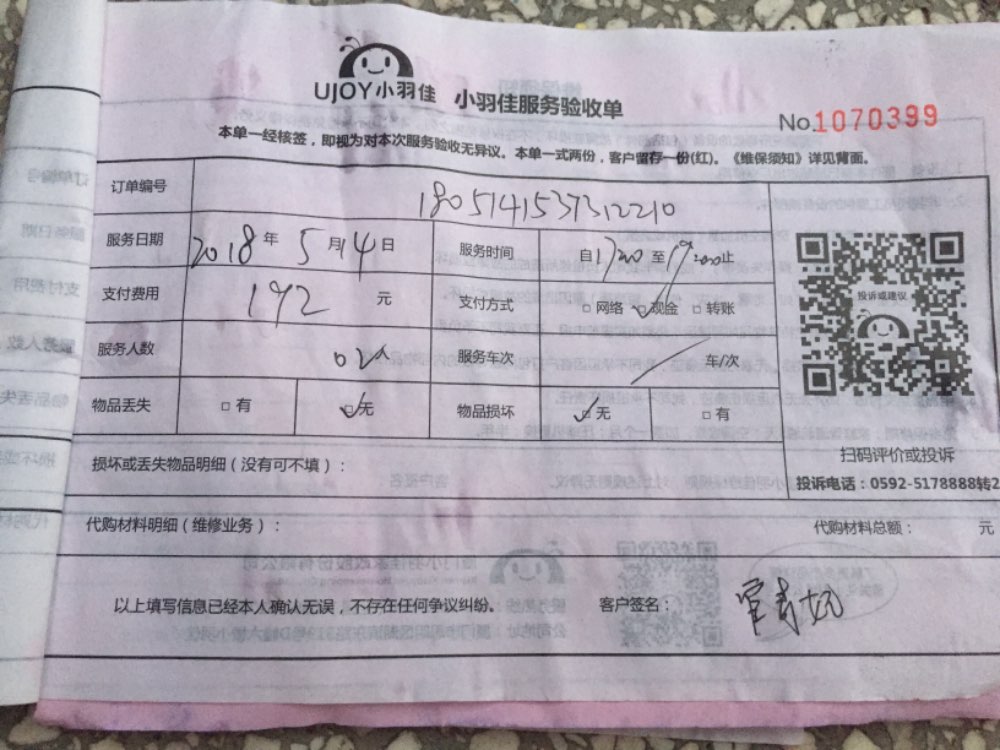 UJOY小羽佳 小羽佳服务验收单
No.1070399
本单一经核签，即视为对本次服务验收无异议。本单一式两份，客户留存一份(红)。《维保须知》详见背面。
订单编号 1805141537312210
服务日期 2018年5月14日 服务时间 自17:00至19:00止
支付费用 192元 支付方式 □网络 ☑现金 □转账
服务人数 02人 服务车次 / 车/次
物品丢失 □有 ☑无 物品损坏 ☑无 □有
投诉或建议
扫码评价或投诉
损坏或丢失物品明细（没有可不填）：
投诉电话：0592-5178888转2
代购材料明细（维修业务）： 代购材料总额： 元
以上填写信息已经本人确认无误，不存在任何争议纠纷。 客户签名：